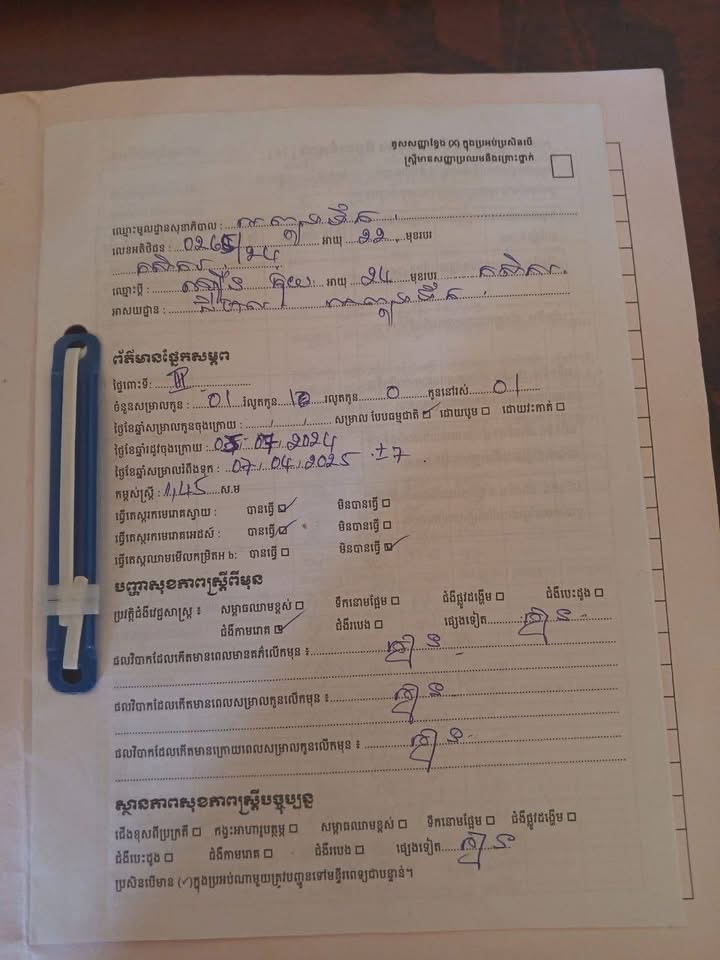 គូសសញ្ញាខ្វែង (X) ក្នុងប្រអប់ប្រសិនបើ
ស្ត្រីមានសញ្ញាប្រឈមនឹងគ្រោះថ្នាក់
ឈ្មោះមូលដ្ឋានសុខាភិបាល :
លេខអតិថិជន : អាយុ 22 មុខរបរ
កសិករ
ឈ្មោះប្តី : អាយុ 24 មុខរបរ កសិករ
អាសយដ្ឋាន :
ព័ត៌មានផ្នែកសម្ភព
ផ្ទៃពោះទី: III
ចំនួនសម្រាលកូន : 01 រំលូតកូន រលូតកូន 0 កូននៅរស់ 01
ថ្ងៃខែឆ្នាំសម្រាលកូនចុងក្រោយ : / / សម្រាល បែបធម្មជាតិ ☑ ដោយបូម ☐ ដោយវះកាត់ ☐
ថ្ងៃខែឆ្នាំរដូវចុងក្រោយ : 07 / 2024
ថ្ងៃខែឆ្នាំសម្រាលរំពឹងទុក : 07 / 04 / 2025 ±7
កម្ពស់ស្ត្រី : 1,45 ស.ម
ធ្វើតេស្តរកមេរោគស្វាយ : បានធ្វើ ☑ មិនបានធ្វើ ☐
ធ្វើតេស្តរកមេរោគអេដស៍ : បានធ្វើ ☑ មិនបានធ្វើ ☐
ធ្វើតេស្តឈាមមើលកម្រិតអ b: បានធ្វើ ☐ មិនបានធ្វើ ☑
បញ្ហាសុខភាពស្ត្រីពីមុន
ប្រវត្តិជំងឺវេជ្ជសាស្ត្រ ៖ សម្ពាធឈាមខ្ពស់ ☐ ទឹកនោមផ្អែម ☐ ជំងឺផ្លូវដង្ហើម ☐ ជំងឺបេះដូង ☐
ជំងឺកាមរោគ ☑ ជំងឺរបេង ☐ ផ្សេងទៀត គ្មាន
ផលវិបាកដែលកើតមានពេលមានគភ៌លើកមុន ៖ គ្មាន
ផលវិបាកដែលកើតមានពេលសម្រាលកូនលើកមុន ៖ គ្មាន
ផលវិបាកដែលកើតមានក្រោយពេលសម្រាលកូនលើកមុន ៖ គ្មាន
ស្ថានភាពសុខភាពស្ត្រីបច្ចុប្បន្ន
ជើងខុសពីប្រក្រតី ☐ កង្វះអាហារូបត្ថម្ភ ☐ សម្ពាធឈាមខ្ពស់ ☐ ទឹកនោមផ្អែម ☐ ជំងឺផ្លូវដង្ហើម ☐
ជំងឺបេះដូង ☐ ជំងឺកាមរោគ ☐ ជំងឺរបេង ☐ ផ្សេងទៀត គ្មាន
ប្រសិនបើមាន (✓)ក្នុងប្រអប់ណាមួយត្រូវបញ្ជូនទៅមន្ទីរពេទ្យជាបន្ទាន់។